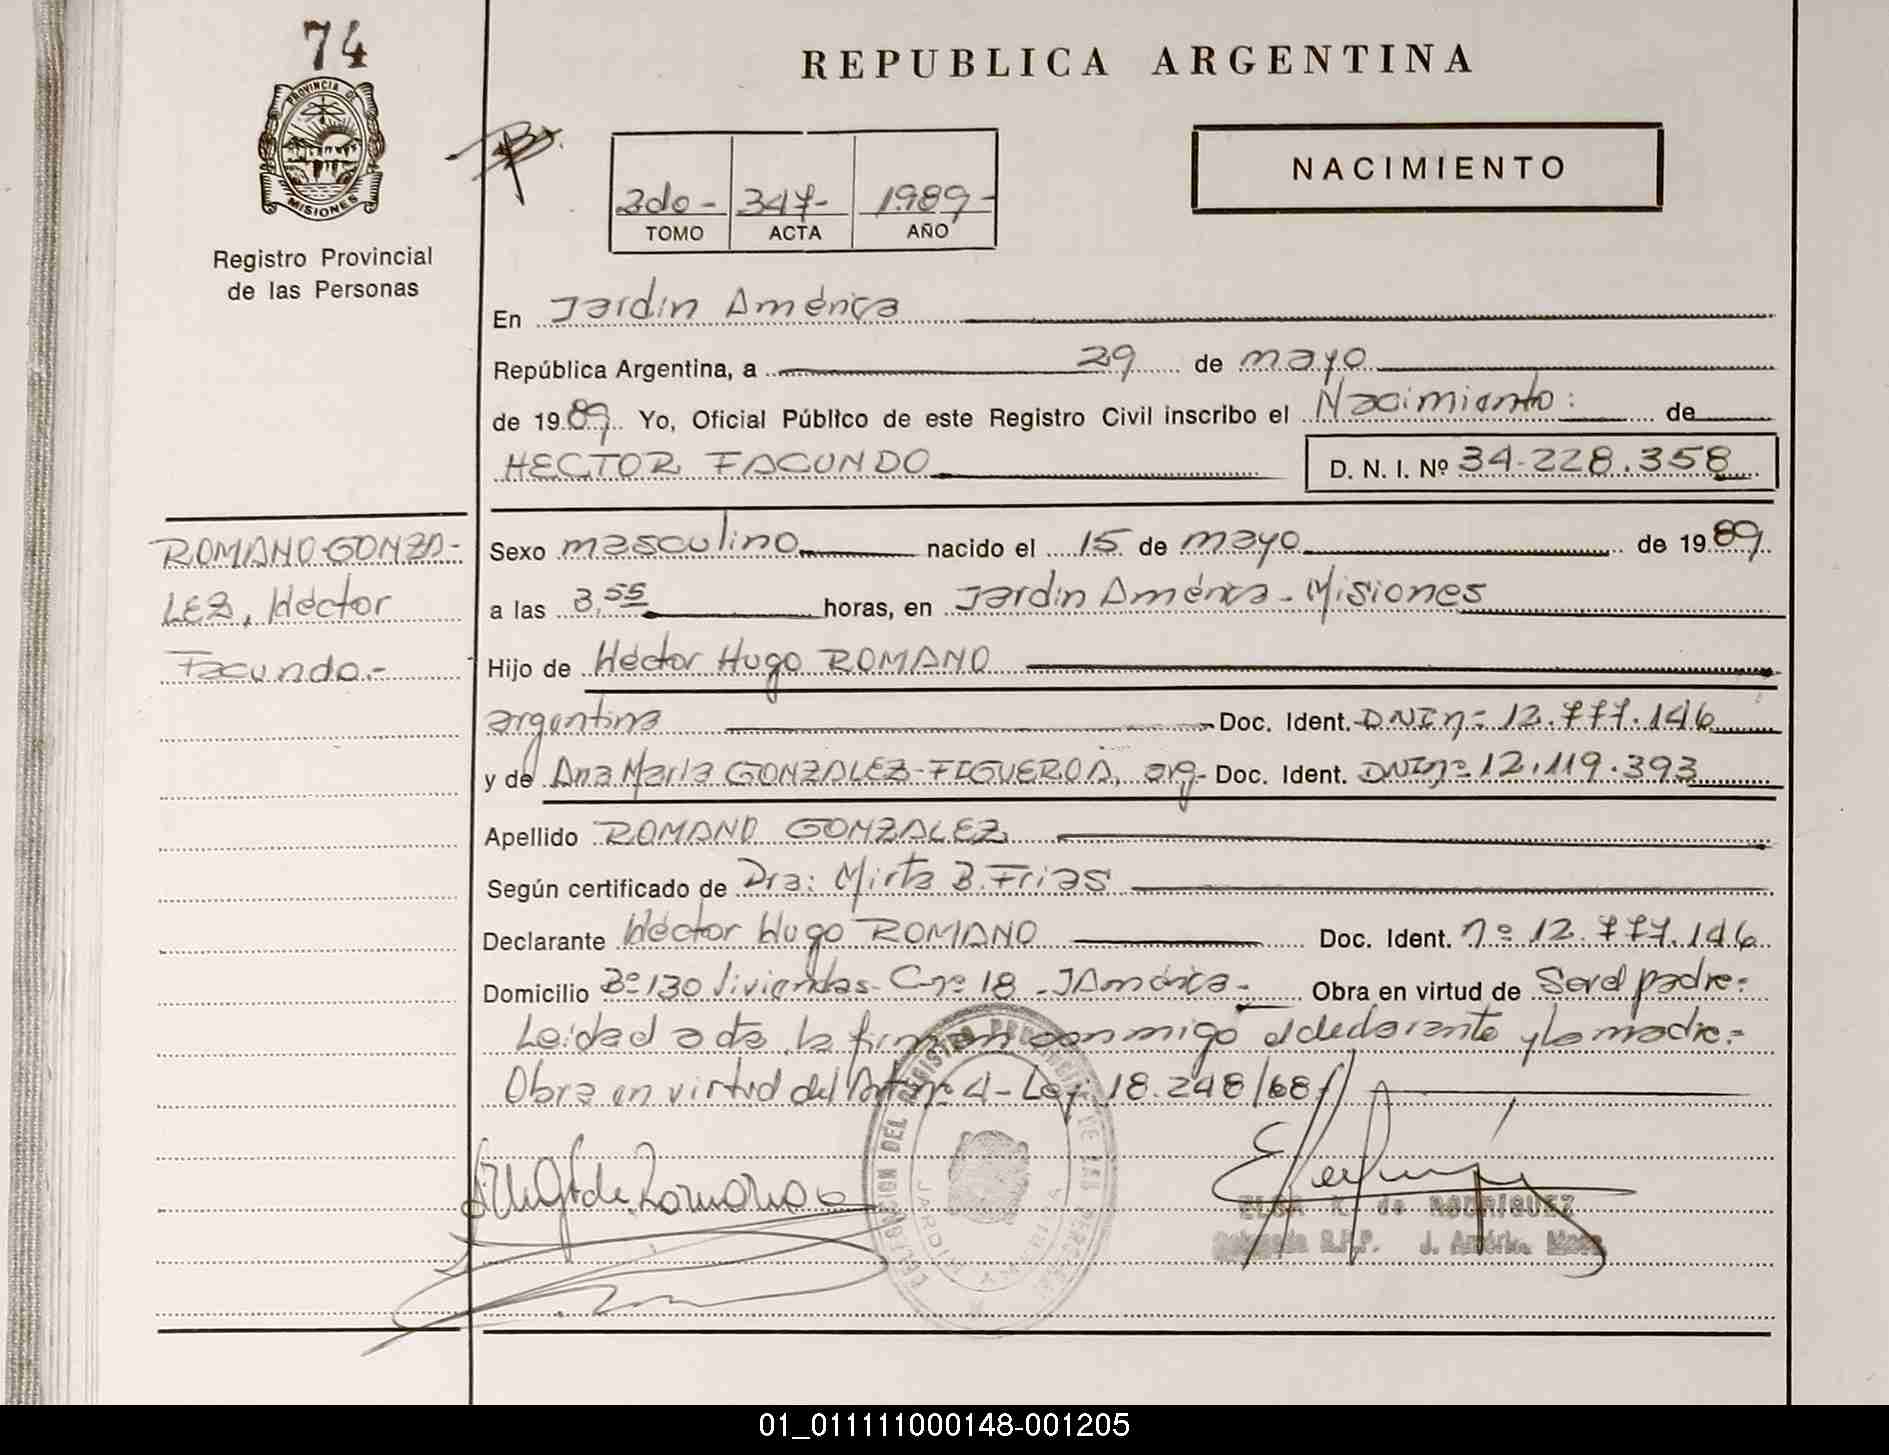 74
PROVINCIA DE
MISIONES
Registro Provincial
de las Personas
REPUBLICA ARGENTINA
NACIMIENTO
2do - 347- 1989-
TOMO ACTA AÑO
En Jardín América
República Argentina, a 29 de mayo
de 1989. Yo, Oficial Público de este Registro Civil inscribo el Nacimiento: de
HECTOR FACUNDO D. N. I. Nº 34.228.358
ROMANO GONZA-
LEZ, Héctor
Facundo.-
Sexo masculino nacido el 15 de mayo de 1989
a las 8,55 horas, en Jardín América - Misiones
Hijo de Héctor Hugo ROMANO
argentina Doc. Ident. DNI nº 12.777.146
y de Ana María GONZALEZ-FIGUEROA, arg- Doc. Ident. DNI nº 12.119.393
Apellido ROMANO GONZALEZ
Según certificado de Dra: Mirta B. Frias
Declarante Héctor Hugo ROMANO Doc. Ident. nº 12.777.146
Domicilio Bº 130 Viviendas - C-nº 18 - J América - Obra en virtud de Ser el padre:
Leída el acta, la firman conmigo el declarante y la madre.-
Obra en virtud del Art nº 4 - Ley 18.248/68
de Romano
DELEGACION DEL REGISTRO PROVINCIAL DE LAS PERSONAS
JARDIN AMERICA
ELSA R. de RODRIGUEZ
Delegada R.P.P. J. América Mnes
01_011111000148-001205